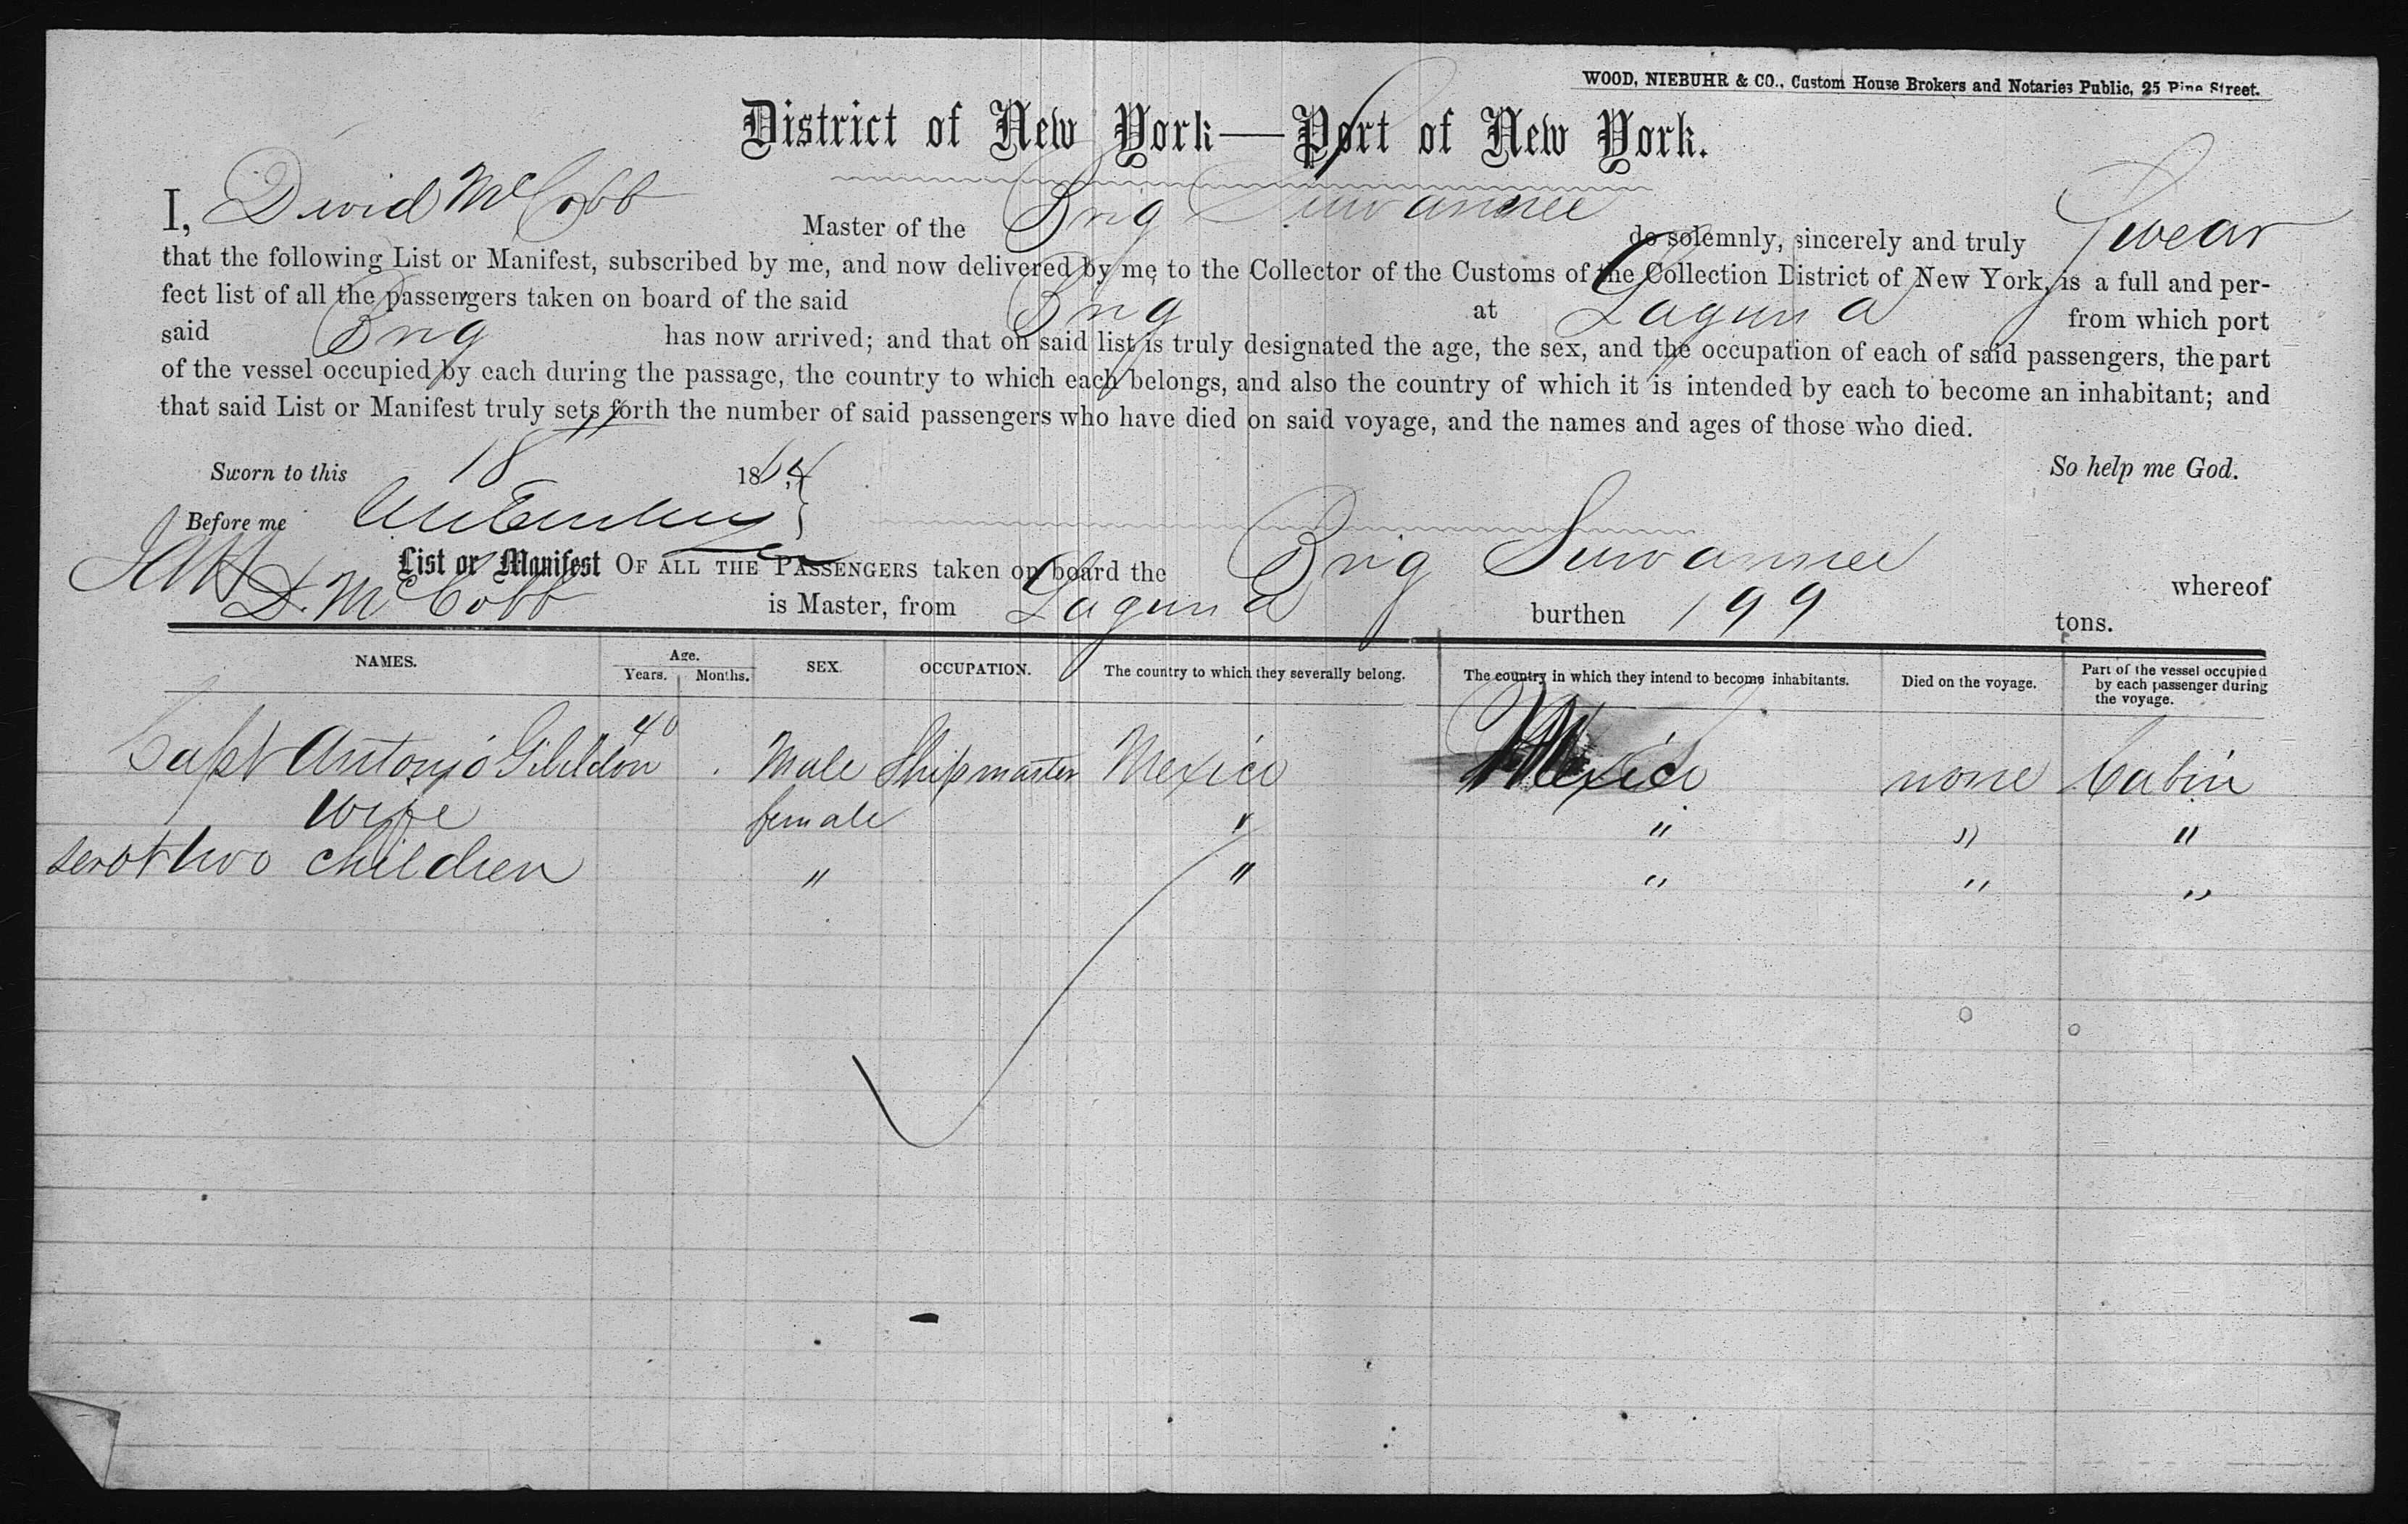 WOOD, NIEBUHR & CO., Custom House Brokers and Notaries Public, 25 Pine Street.
District of New York—Port of New York.
I, David McCobb Master of the Brig Suwannee do solemnly, sincerely and truly Swear
that the following List or Manifest, subscribed by me, and now delivered by me to the Collector of the Customs of the Collection District of New York, is a full and per-
fect list of all the passengers taken on board of the said Brig at Laguna from which port
said Brig has now arrived; and that on said list is truly designated the age, the sex, and the occupation of each of said passengers, the part
of the vessel occupied by each during the passage, the country to which each belongs, and also the country of which it is intended by each to become an inhabitant; and
that said List or Manifest truly sets forth the number of said passengers who have died on said voyage, and the names and ages of those who died.
Sworn to this 18 1864 So help me God.
Before me
List or Manifest OF ALL THE PASSENGERS taken on board the Brig Suwannee whereof
D. McCobb is Master, from Laguna burthen 199 tons.
NAMES. Age. Years. Months. SEX. OCCUPATION. The country to which they severally belong. The country in which they intend to become inhabitants. Died on the voyage. Part of the vessel occupied by each passenger during the voyage.
Capt Antonio 40 Male Shipmaster Mexico Mexico none Cabin
wife female " " " "
two children " " " " "